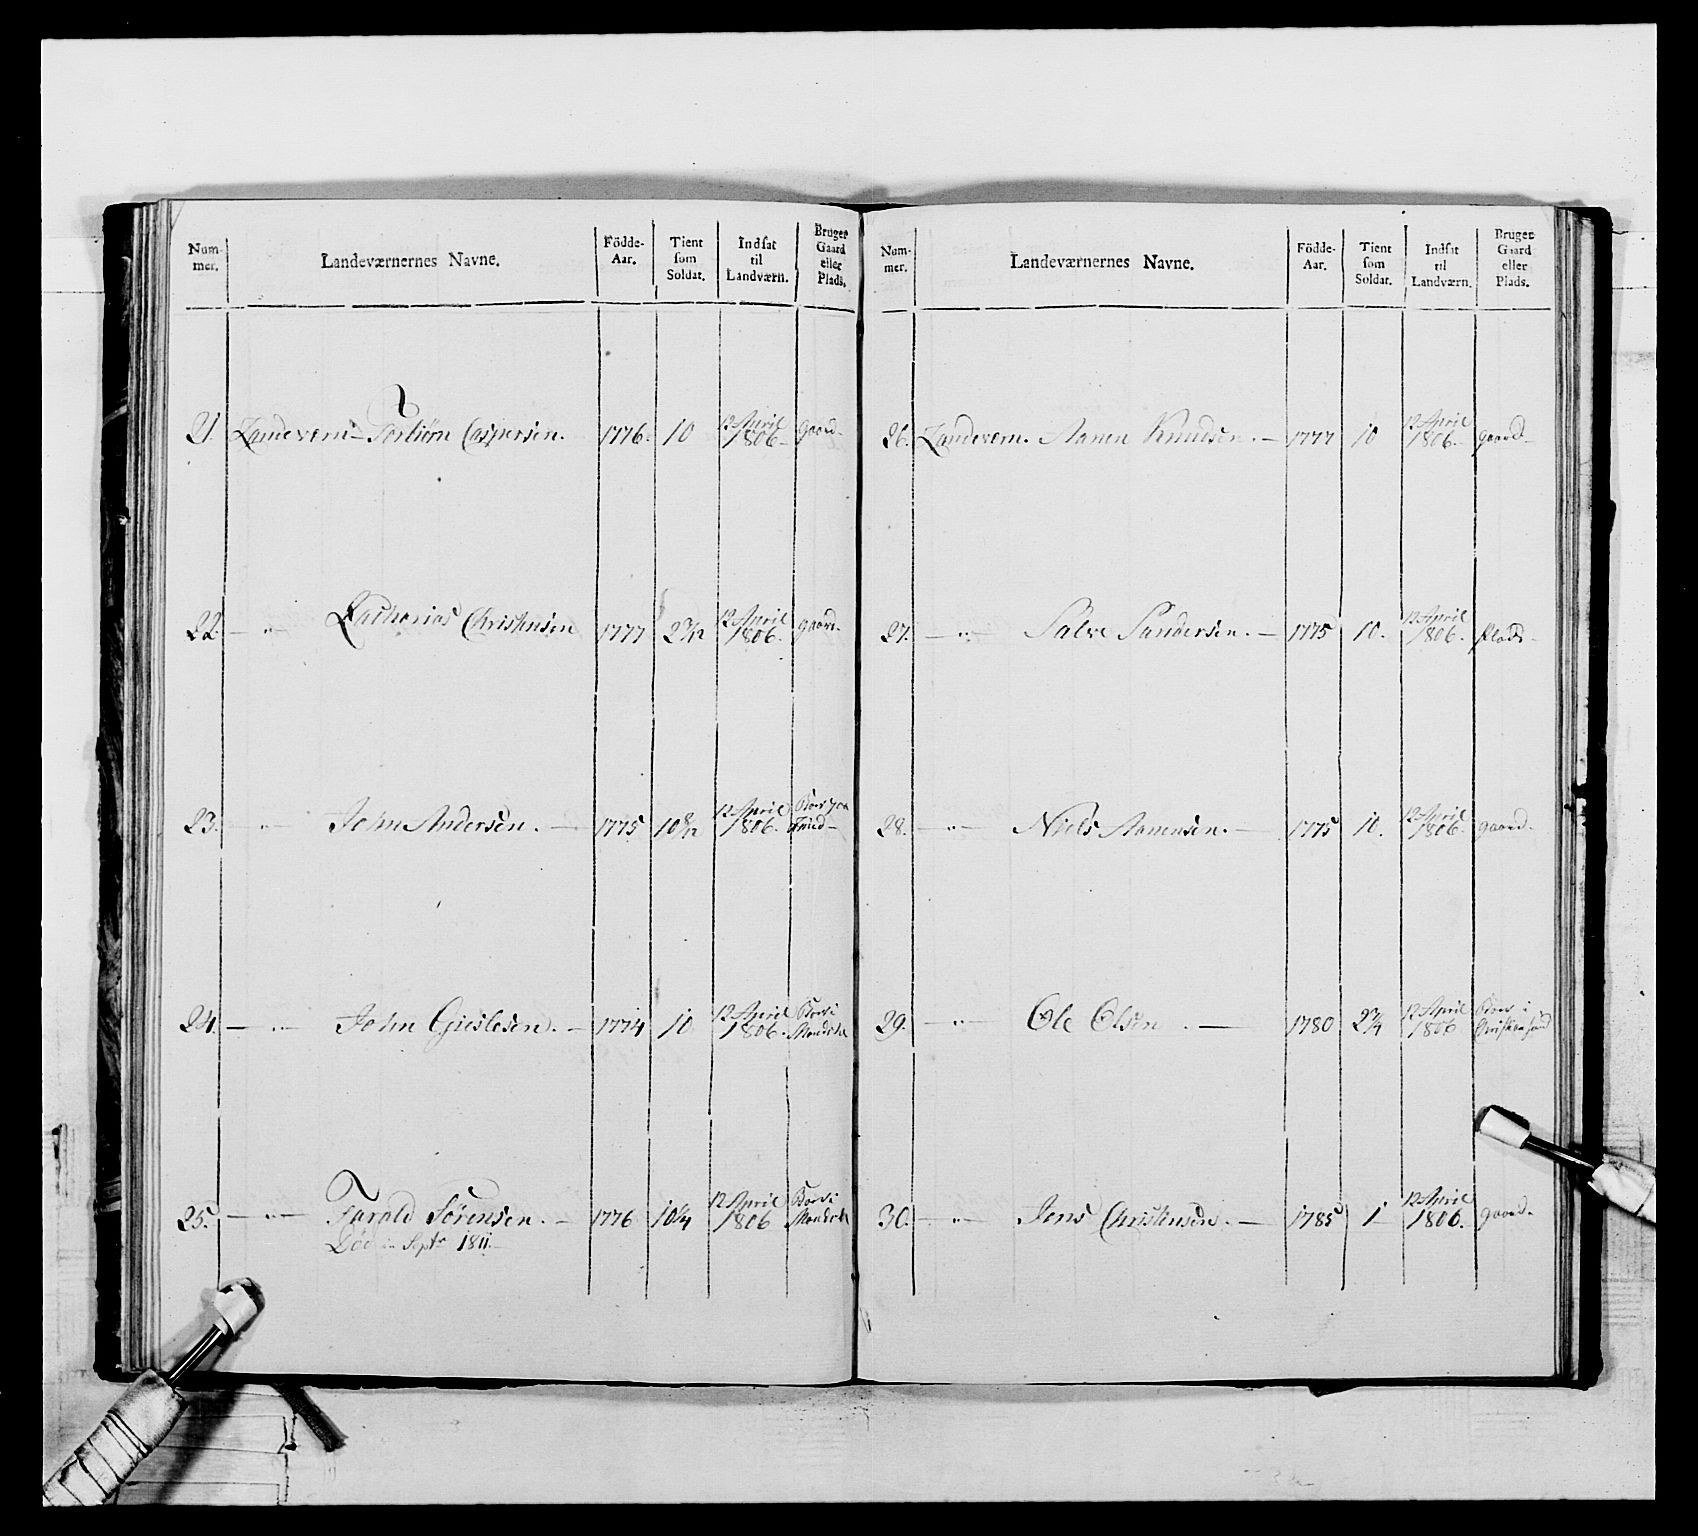 Num- mer. | Landeværnernes Navne. | Födde- Aar. | Tient som Soldat. | Indsat til Landværn. | Bruger Gaard eller Plads.
21. Landevern Torbiörn Caspersen. 1776. 10 12 April 1806. gaard.
22. — " — Zacharias Christensen 1777 2 7/12 12 April 1806. gaard.
23. — " — John Andersen. — 1775 10 8/12 12 April 1806. Boer paa
24. — " — John Gieslesen. — 1774 10 12 April 1806. Boer i Mandahl
25. — " — Harald Sörensen. — 1776 10 1/4 12 April 1806 Boer i Mandahl
Död in Septr 1811.
Num- mer. | Landeværnernes Navne. | Födde- Aar. | Tient som Soldat. | Indsat til Landværn. | Bruger Gaard eller Plads.
26. Landevern. Aanen Knudsen. — 1777 10 12 April 1806. gaard
27. — " — Salve Sandersen. — 1775 10. 12 April 1806. Plads.
28. — " — Niels Aanensen. — 1775 10. 12 April 1806. gaard.
29. — " — Ole Olsen. — 1780 2 3/4 12 April 1806 Boer i Christiansand
30. — " — Jens Christensen. — 1785 1 12 April 1806. gaard.